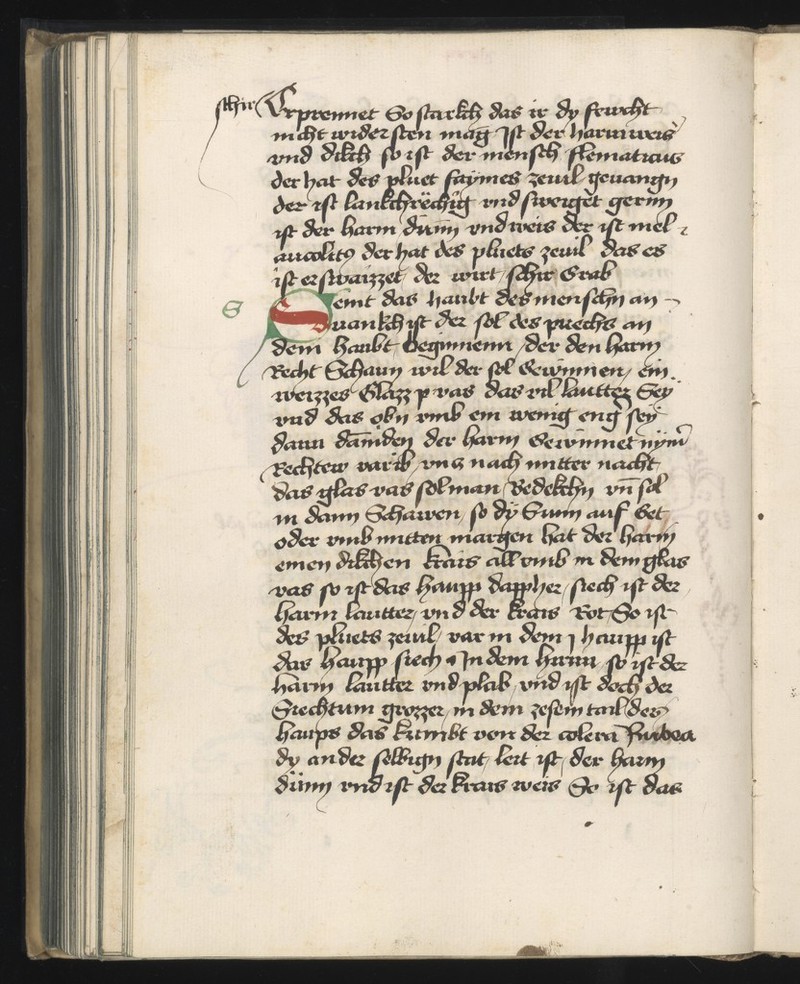 schir Erprennet So starkch das ir dy fewcht
nicht widersten mag Ist der harm weis
vnd dikch so ist der mensch flematicus
der hat des pluet faymes zeuil geuangn
der ist lankchrëchig vnd sweiget gernn
ist der harm dünn vnd weis der ist mel
ancolicꝰ der hat des pluets zeuil das es
ist erswaizzet der wirt schir Grab
S Seint das haubt des menschn an
vankch ist der sol des puechs an
dem haubt Beginnenn der den harm
Recht Schawn wil der sol Gewinnen ein
weizzes Glazz p vas das vil lautter Sey
vnd das obn vmb ein wenig eng sey
dann damiden der harm Gewinnet nym̄
Rechtew varib vns nach mitter nacht
das glas vas sol man Bedekchn vn̄ sol
in dann Schawen so dy Sunn auf Get
oder vmb mitten margen hat der harm
einen dikchen krais all vmb in dem glas
vas so ist das haupp dappher siech ist der
harm lautter vnd der krais Rot So ist
des pluets zeuil var in dem j haupp ist
das haupp siech In dem hirnn so ist der
harm lautter vnd plab vnd ist doch der
Siechtum grozzer in dem zesem tail des
haups das kumbt von der colera Rubea
dy an der selbign stat leit ist der harm
dünn vnd ist der krais weis So ist das